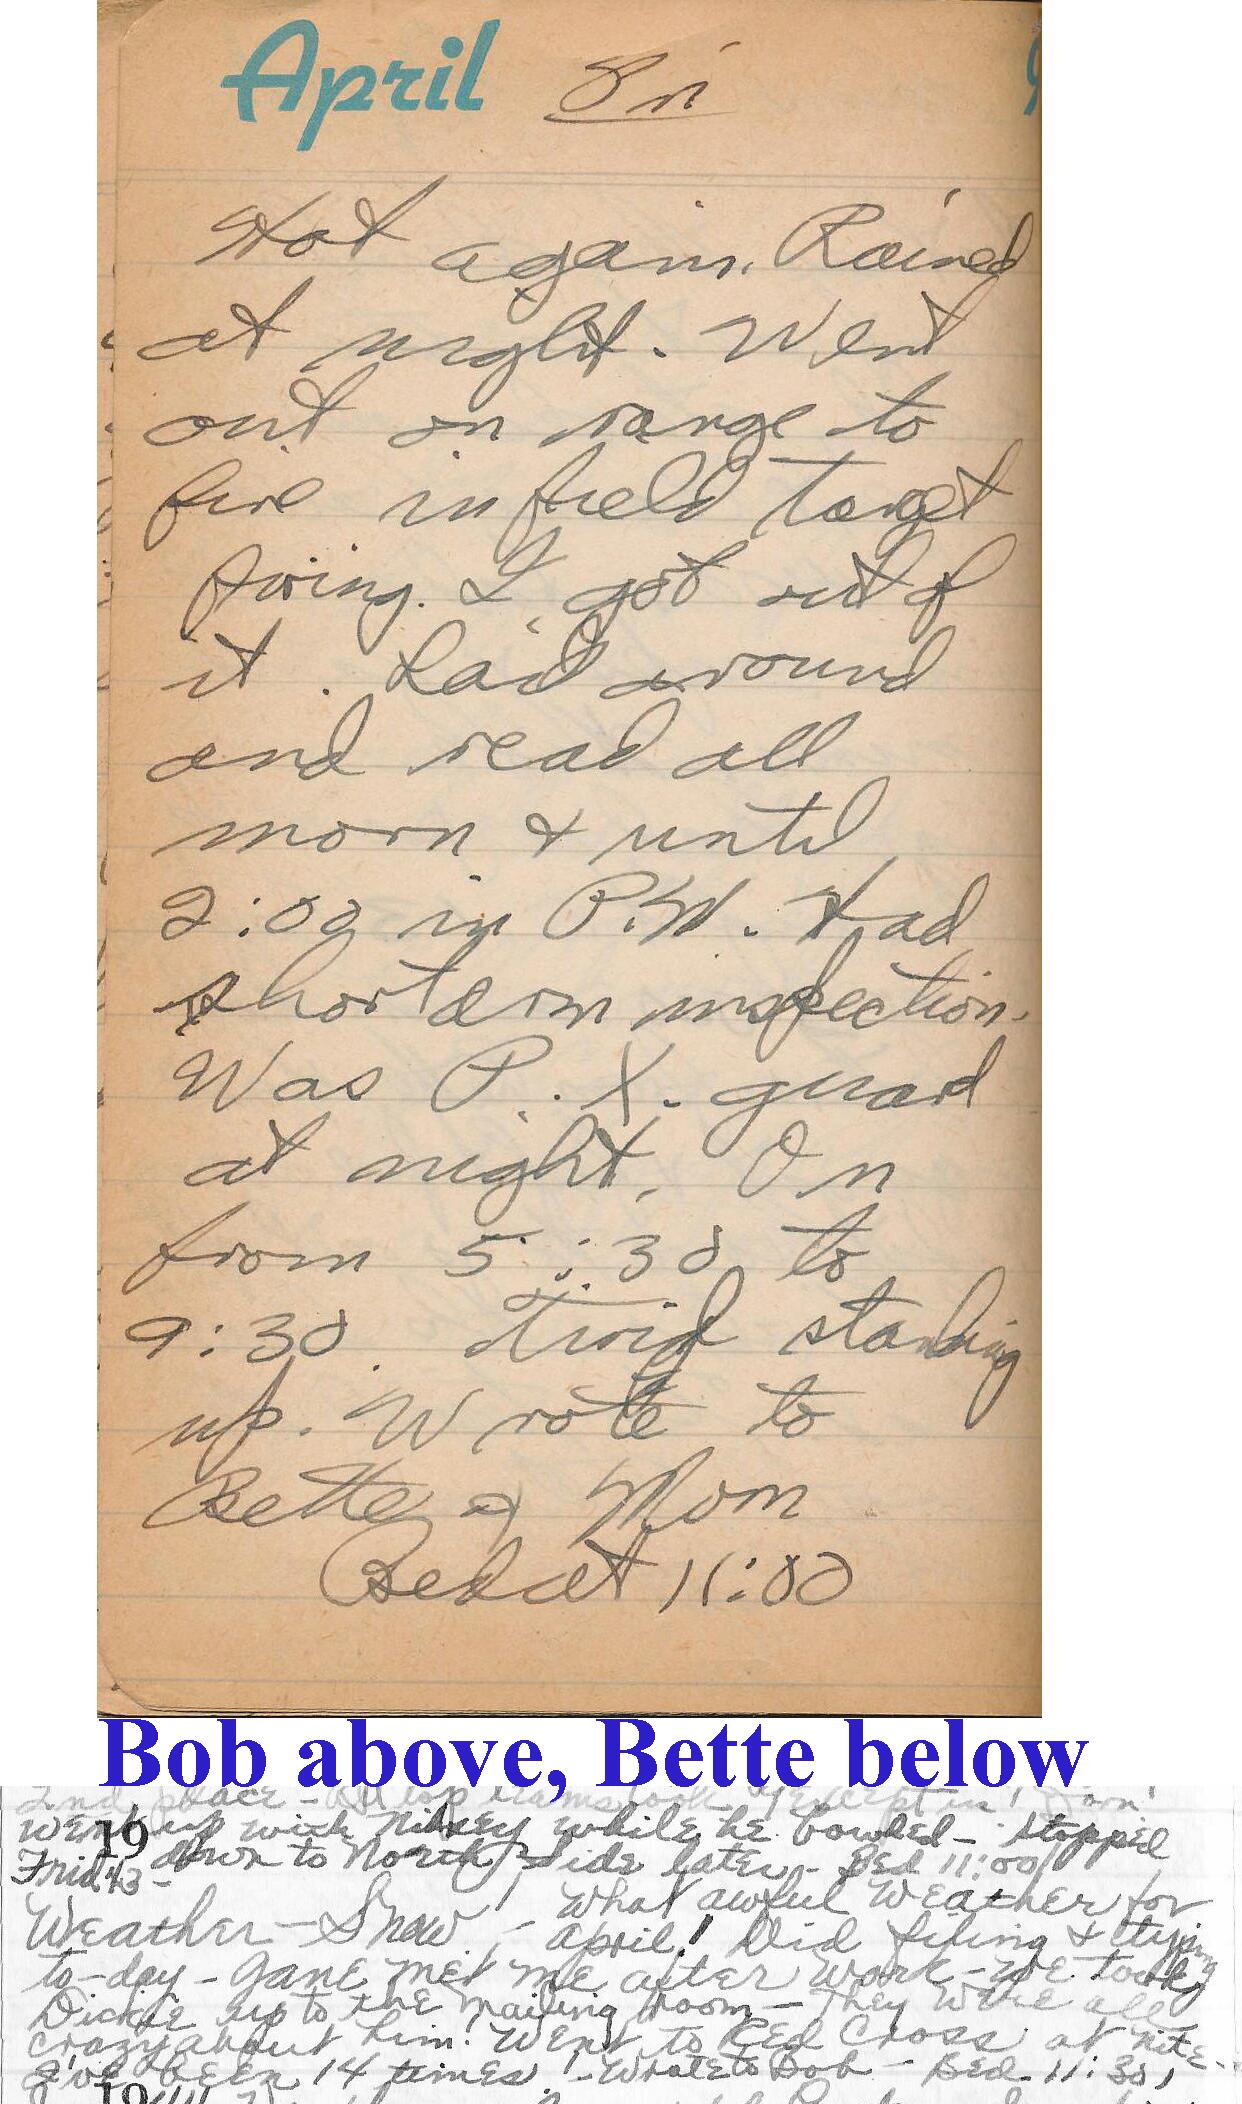 April Fri
Hot again. Rained
at night. Went
out on range to
fire in field target
firing. I got out of
it. Laid around
and read all
morn & until
2:00 in P.M. Had
short arm inspection.
Was P.X. guard
at night. On
from 5:30 to
9:30. Tired standing
up. Wrote to
Bette & Mom
Bed at 11:00
Bob above, Bette below
2nd place -
went up with while he bowled - Stopped
19
down to North Side later - Bed 11:00
Frid. 43 -
Weather - Snow! - What awful weather for
April! Did filing & typing
to-day - Jane met me after work - we took
Dickie up to the mailing room - They were all
crazy about him! Went to Red Cross at nite -
I've been 14 times! - Wrote to Bob - Bed - 11:30
19